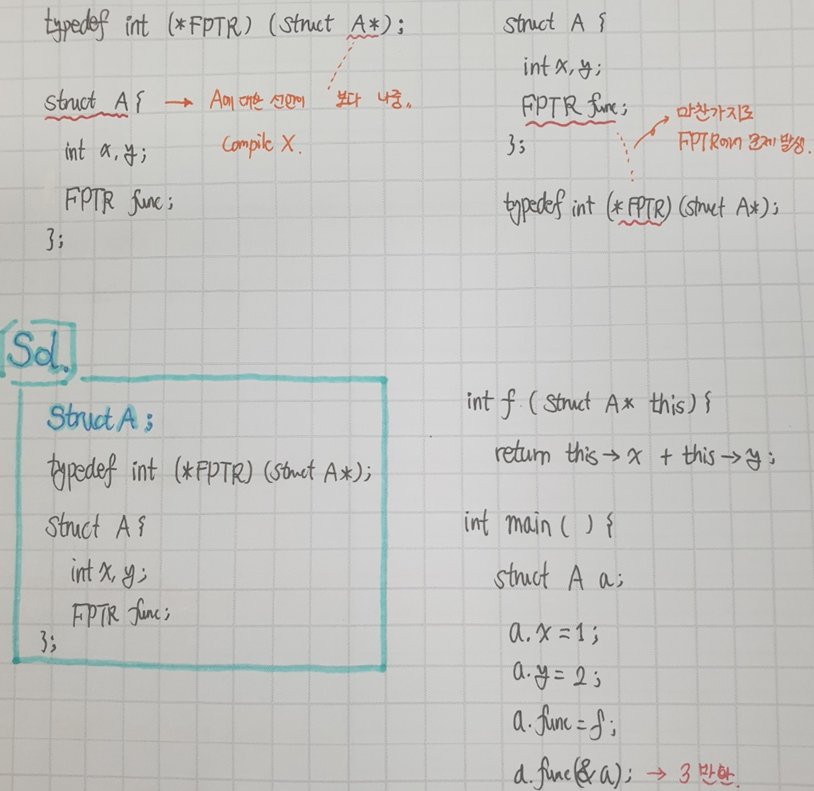 typedef int (*FPTR) (struct A*);
struct A {
→ A에 대한 선언이 보다 나중.
Compile X.
int x, y;
FPTR func;
};
struct A {
int x, y;
FPTR func;
};
→ 마찬가지로
FPTR에서 문제 발생.
typedef int (*FPTR) (struct A*);
Sol.
Struct A;
typedef int (*FPTR) (struct A*);
struct A {
int x, y;
FPTR func;
};
int f (struct A* this) {
return this→x + this→y;
int main ( ) {
struct A a;
a.x = 1;
a.y = 2;
a.func = f;
a.func(&a); → 3 반환.